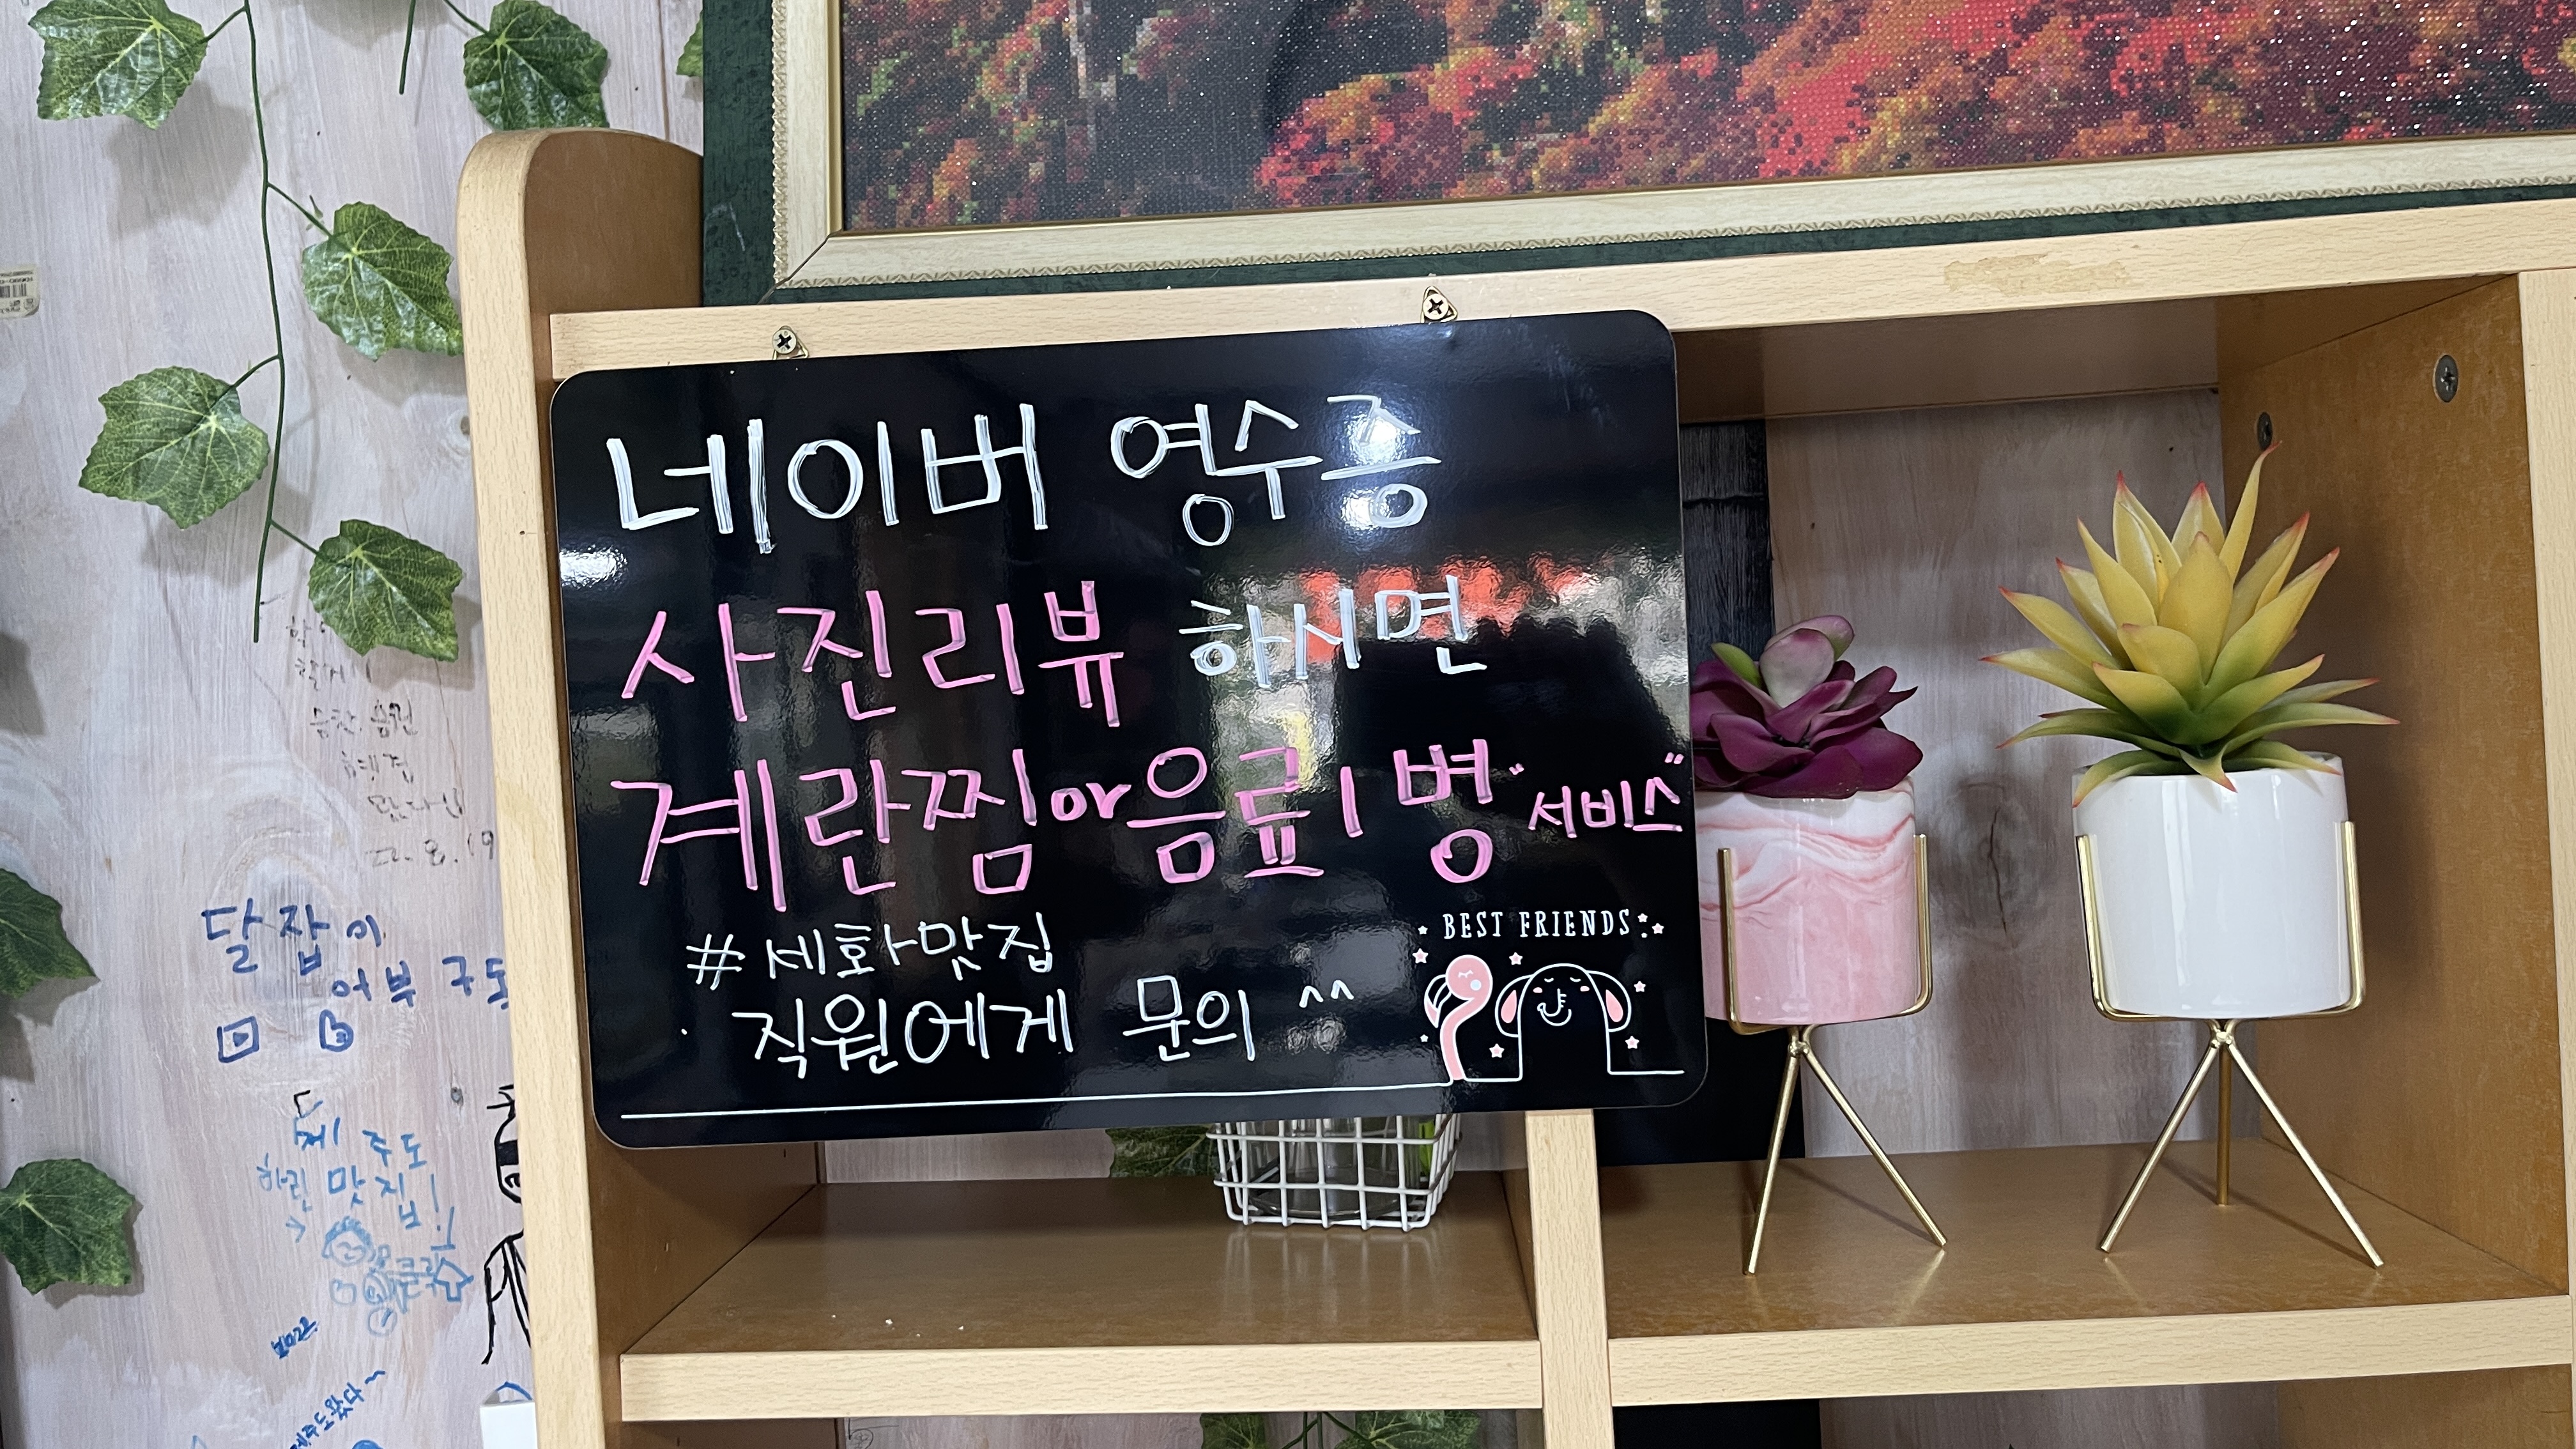 네이버 영수증
사진리뷰 하시면
계란찜or음료1병 "서비스"
#세화맛집
직원에게 문의 ^^
BEST FRIENDS
달잡이
어부 구독
제주도
맛집!
제주도왔다~
22.8.19